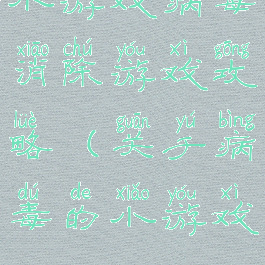 米游戏病毒
xiāo chú yóu xì gōng
消除游戏攻
lüè guān yú bìng
略（关于病
dú de xiǎo yóu xì
毒的小游戏